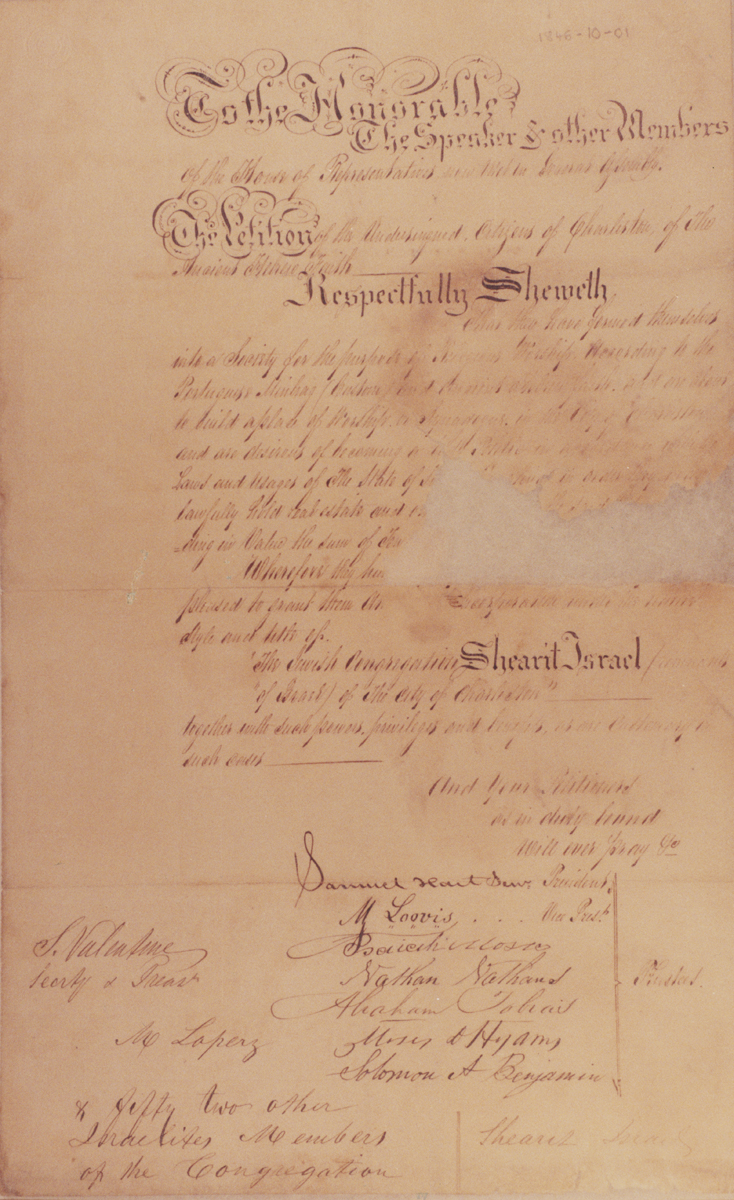 1846-10-01
To the Honorable
The Speaker & other Members
of the House of Representatives now met in General Assembly.
The Petition of the Undersigned, Citizens of Charleston, of the
Ancient Hebrew Faith
Respectfully Sheweth,
That they have formed themselves
into a Society for the purpose of Religious Worship, According to the
Portuguese Minhag (Custom) and Ancient and are about
to build a place of Worship or Synagogue, in the City of Charleston
and are desirous of becoming a Body Politic in
Laws and usages of The State of in order
lawfully hold real estate and
-ding in Value the sum of
Wherefore they
pleased to grant them Incorporated under the name
style and title of,
"The Jewish Congregation Shearit Israel (remnants
of Israel) of The City of Charleston"
together with such powers, privileges and benefits, as are Customary in
such cases
And Your Petitioners
as in duty bound
Will ever pray &c
Samuel Hart Senr President
M Loovis . . . Vice Prest
Isaiah Moses
Nathan Nathans
Abraham Tobias
Moses D Hyams
Solomon A Benjamin
Trustees.
S. Valentine
Secrty & Treasr
M Loperz
& fifty two other
Israelites Members
of the Congregation
Shearit Israel